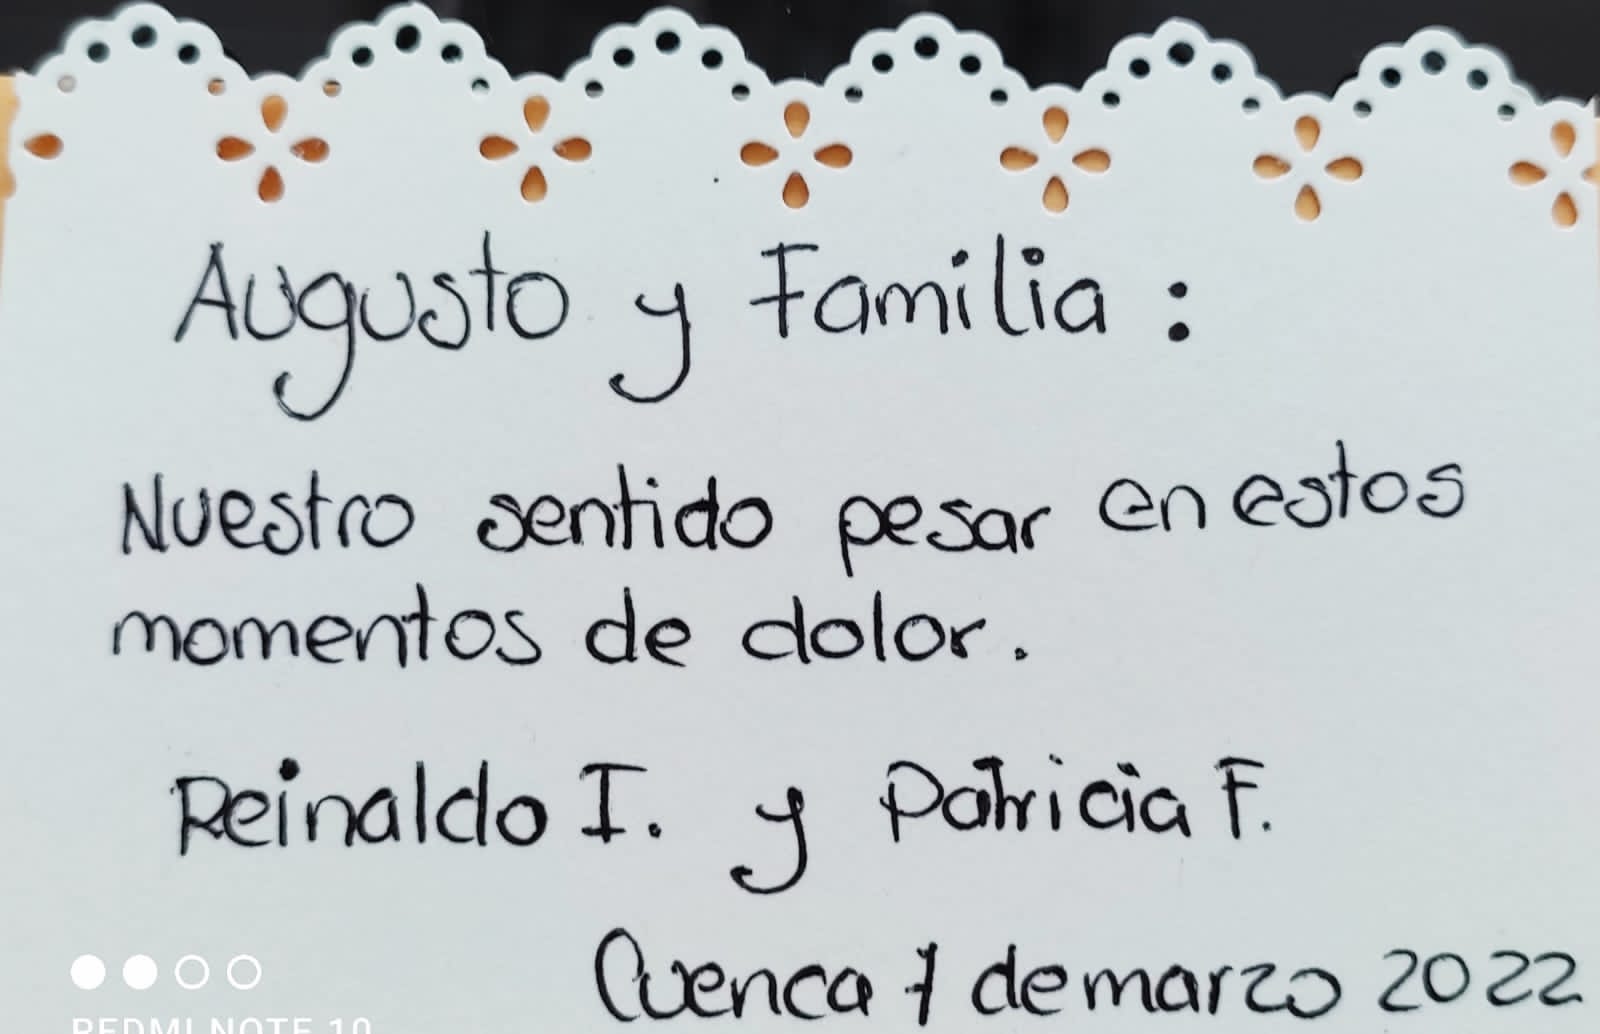 Augusto y Familia :
Nuestro sentido pesar en estos
momentos de dolor.
Reinaldo I. y Patricia F.
Cuenca 7 de marzo 2022
REDMI NOTE 10